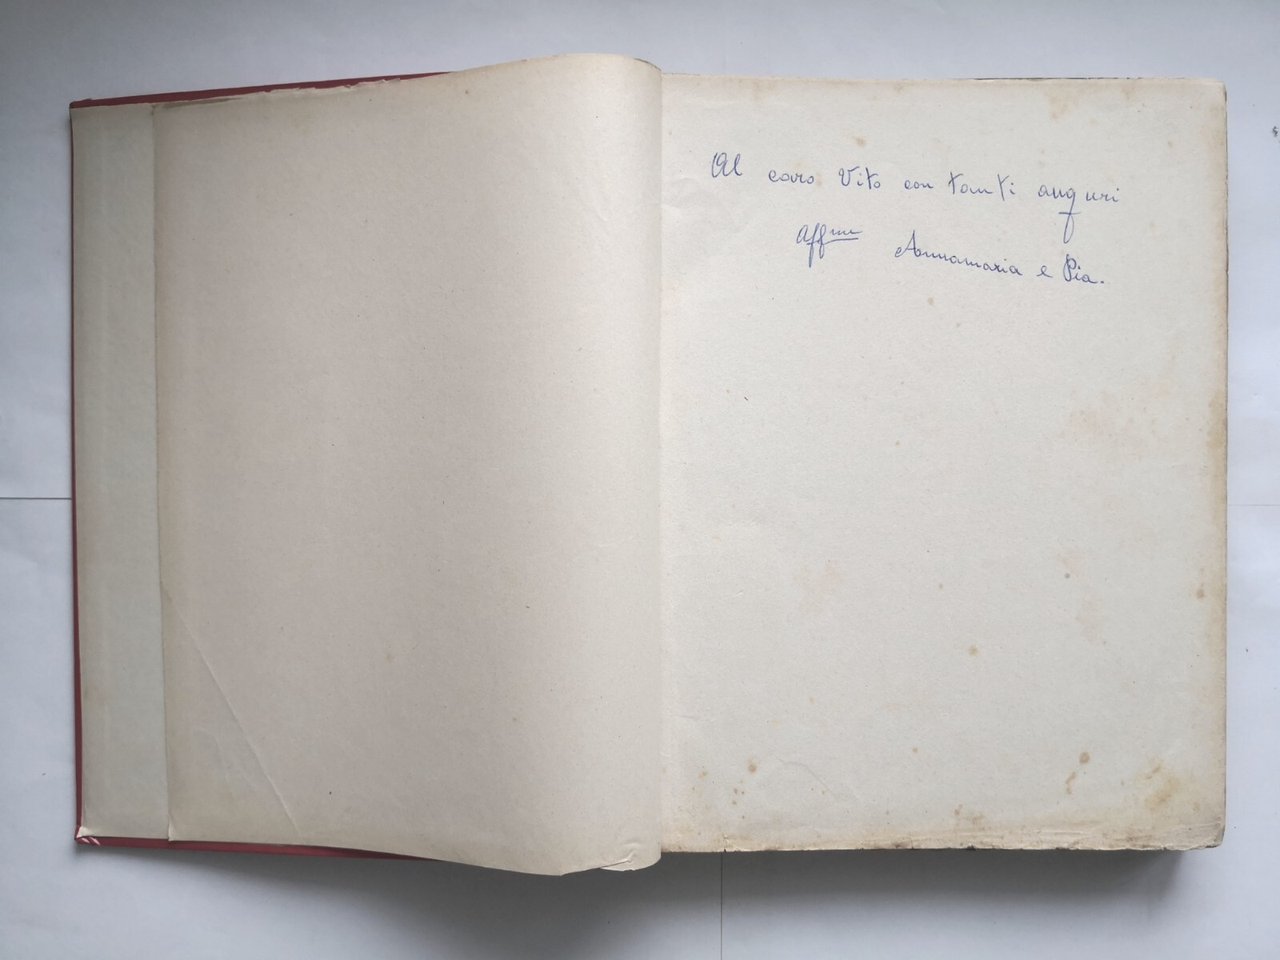 Al caro Vito con tanti auguri
Aff.me Annamaria e Pia.